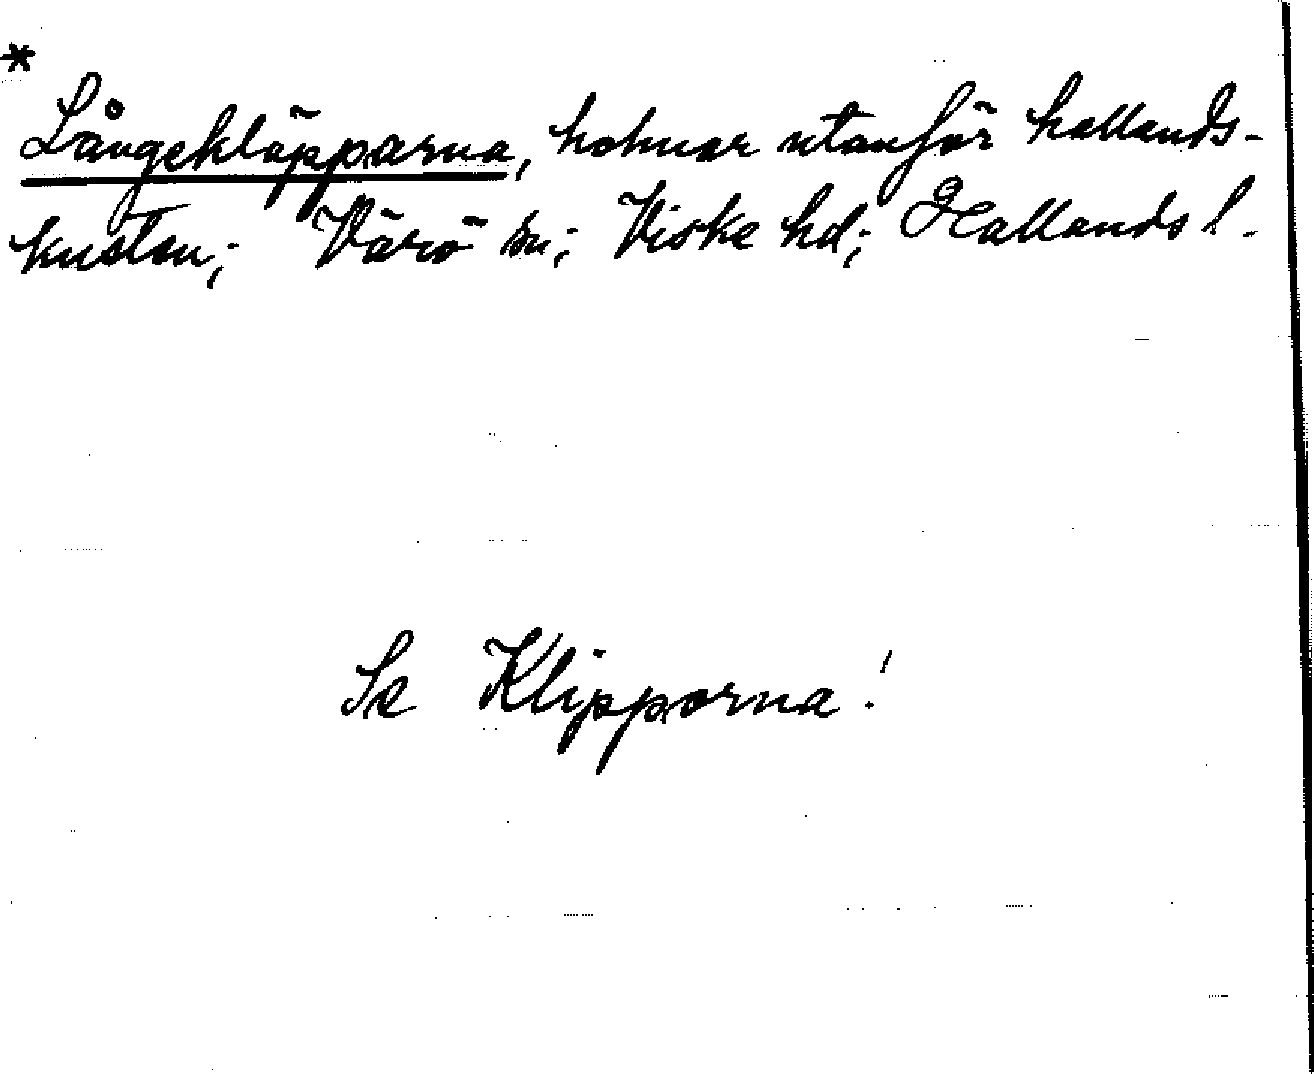 *
Långekläpparna, holmar utanför hallands-
kusten; Värö sn; Viske hd; Hallands l.
Se Klipporna!